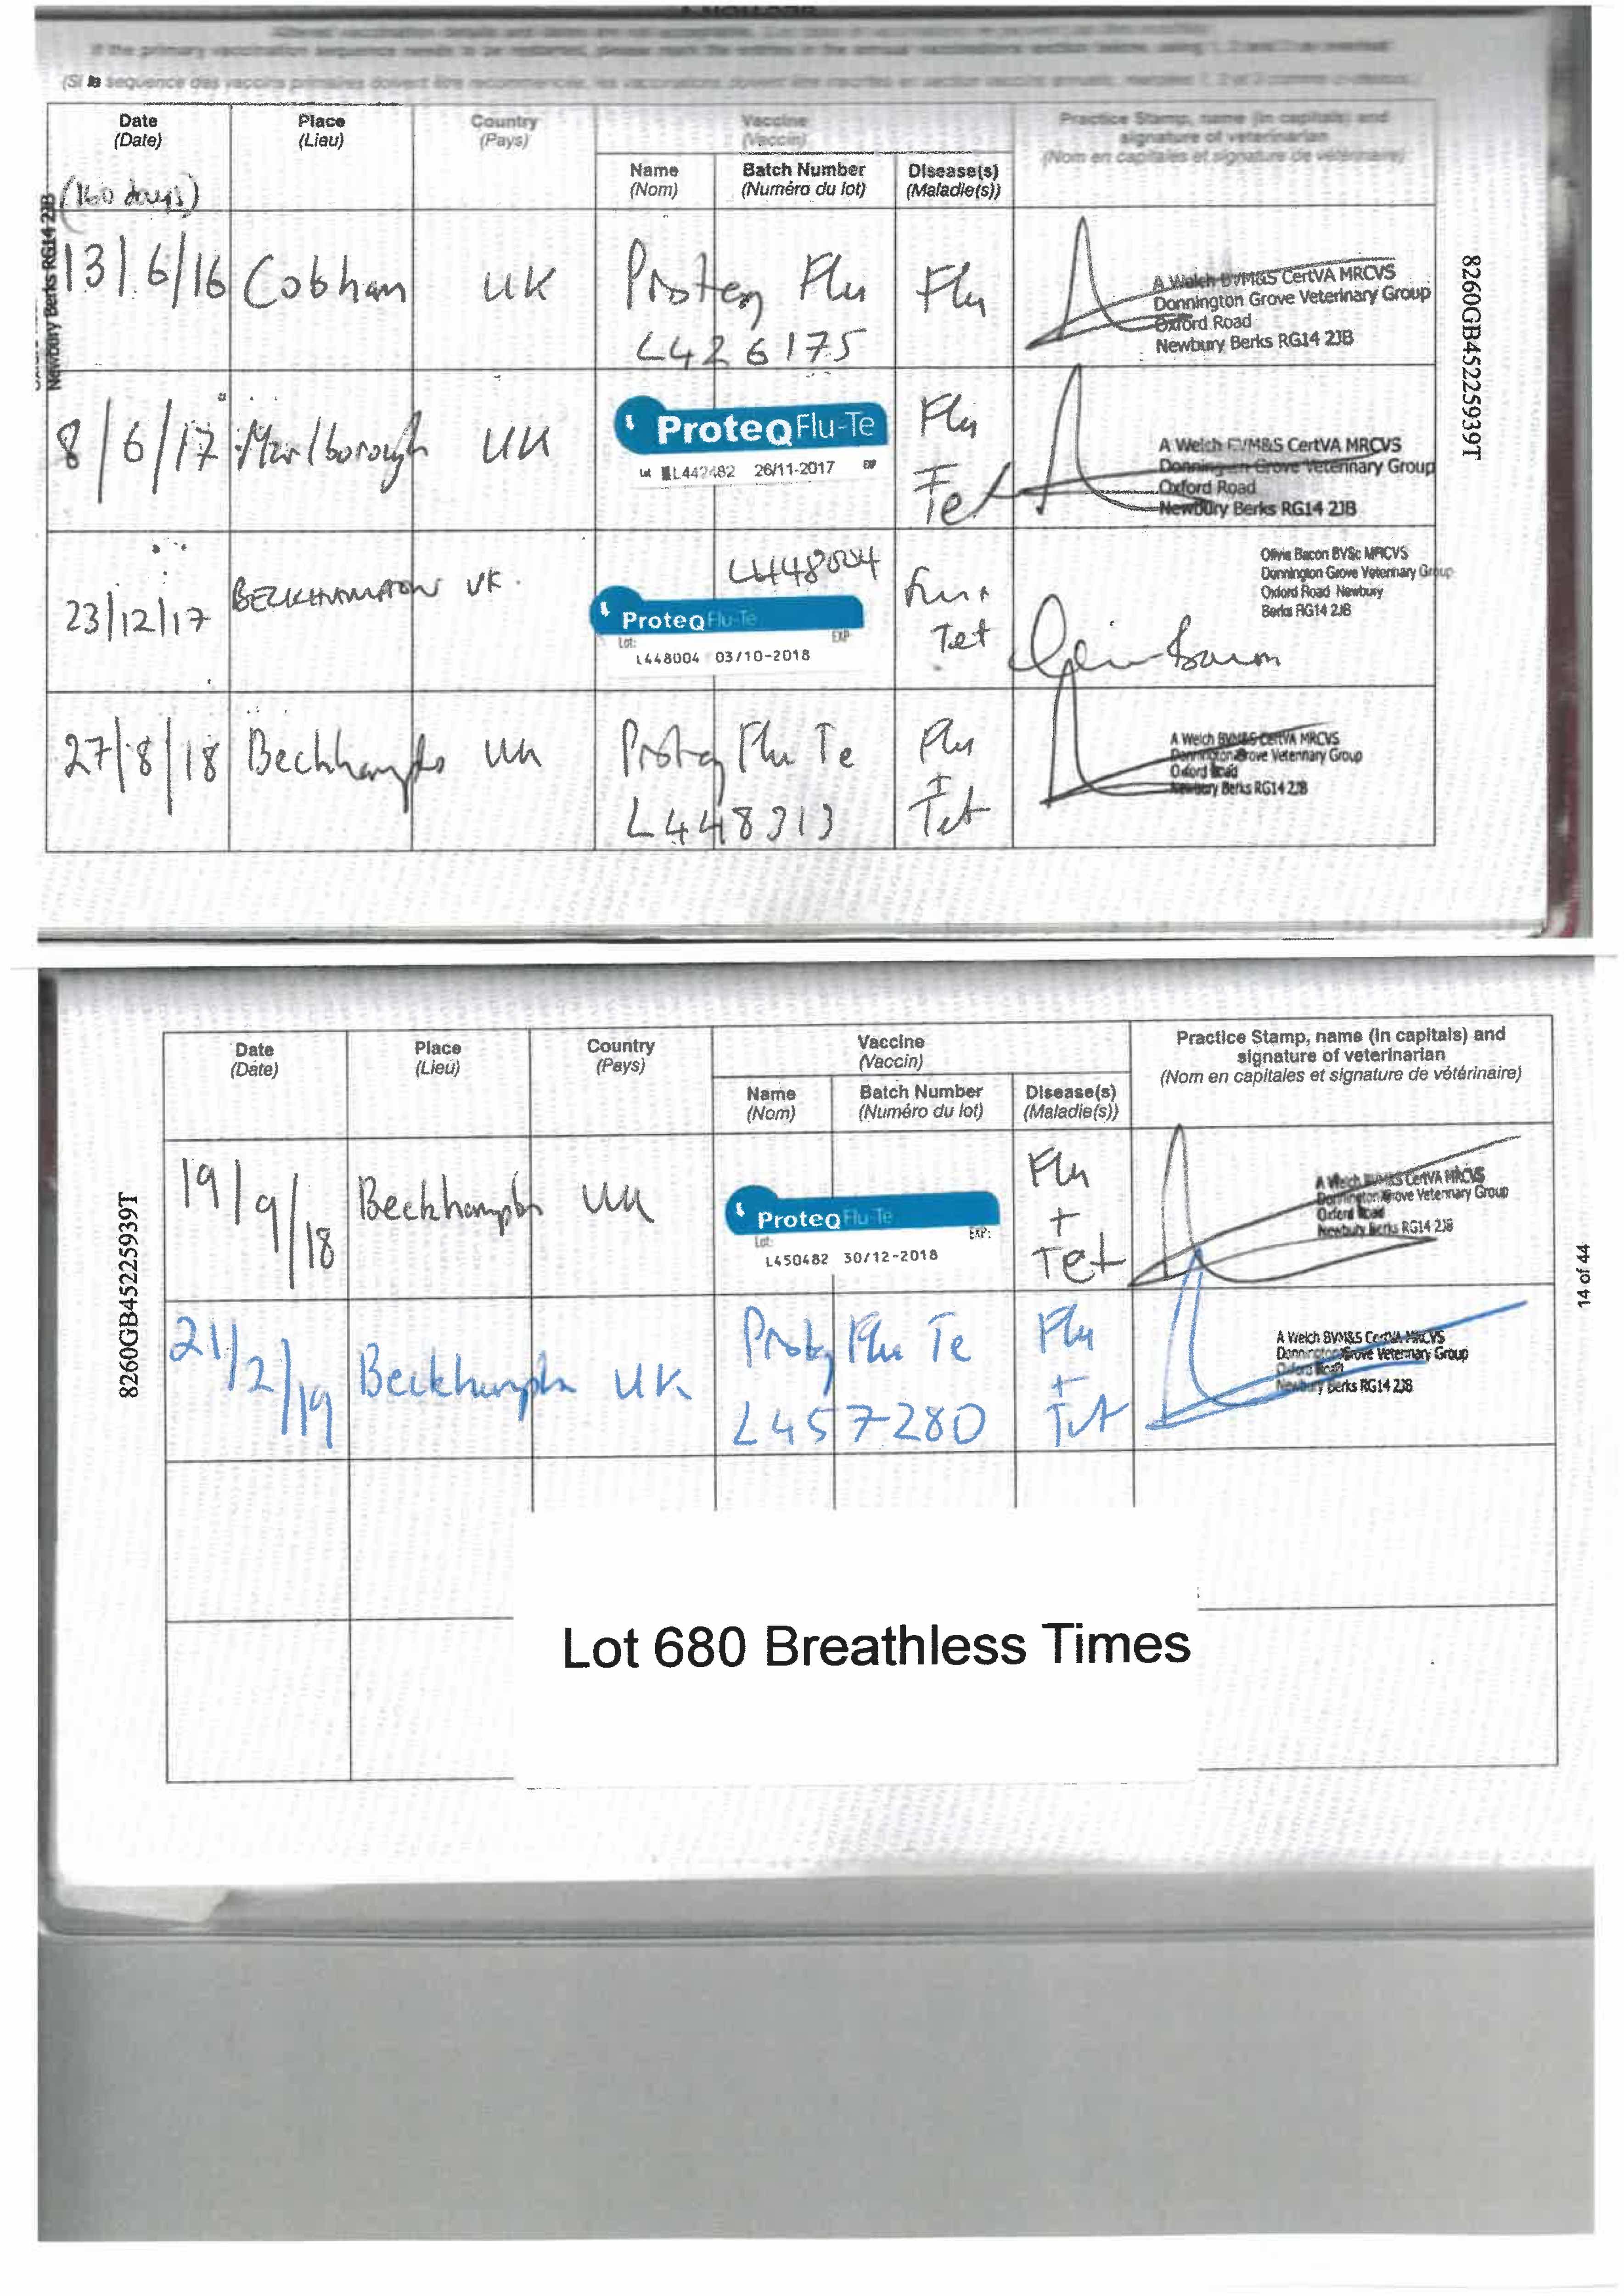 If the primary vaccination sequence needs to be restarted, please mark the entries in the annual vaccinations section below, using 1, 2 and 3 as
(Si la sequence des vaccins primaires doivent être recommencée, les vaccinations doivent être inscrites en section vaccins annuels, marquées 1, 2 et 3 comme ci-dessus.)
Date
(Date)
Place
(Lieu)
Country
(Pays)
Vaccine
(Vaccin)
Name
(Nom)
Batch Number
(Numéro du lot)
Disease(s)
(Maladie(s))
Practice Stamp, name (in capitals) and
signature of veterinarian
(Nom en capitales et signature de vétérinaire)
(160 days)
Newbury Berks RG14 2JB
8260GB452259939T
13/6/16 Cobham UK Proteq Flu Flu
L426175
A Welch BVM&S CertVA MRCVS
Donnington Grove Veterinary Group
Oxford Road
Newbury Berks RG14 2JB
8/6/17 Marlborough UK
ProteqFlu-Te
Lot L442482 26/11-2017 EXP
Flu
Tet
A Welch BVM&S CertVA MRCVS
Donnington Grove Veterinary Group
Oxford Road
Newbury Berks RG14 2JB
23/12/17 BECKHAMPTON UK.
L448004
ProteqFlu-Te
Lot: EXP
L448004 03/10-2018
Flu +
Tet
Olivia Bacon BVSc MRCVS
Donnington Grove Veterinary Group
Oxford Road Newbury
Berks RG14 2JB
Olivia Bacon
27/8/18 Beckhampton UK Proteq Flu Te
L448313
Flu
+
Tet
A Welch BVM&S CertVA MRCVS
Donnington Grove Veterinary Group
Oxford Road
Newbury Berks RG14 2JB
Date
(Date)
Place
(Lieu)
Country
(Pays)
Vaccine
(Vaccin)
Name
(Nom)
Batch Number
(Numéro du lot)
Disease(s)
(Maladie(s))
Practice Stamp, name (in capitals) and
signature of veterinarian
(Nom en capitales et signature de vétérinaire)
8260GB452259939T
14 of 44
19/9/18 Beckhampton UK
ProteqFlu-Te
Lot: EXP:
L450482 30/12-2018
Flu
+
Tet
A Welch BVM&S CertVA MRCVS
Donnington Grove Veterinary Group
Oxford Road
Newbury Berks RG14 2JB
21/2/19 Beckhampton UK Proteq Flu Te
L457280
Flu
+
Tet
A Welch BVM&S CertVA MRCVS
Donnington Grove Veterinary Group
Oxford Road
Newbury Berks RG14 2JB
Lot 680 Breathless Times